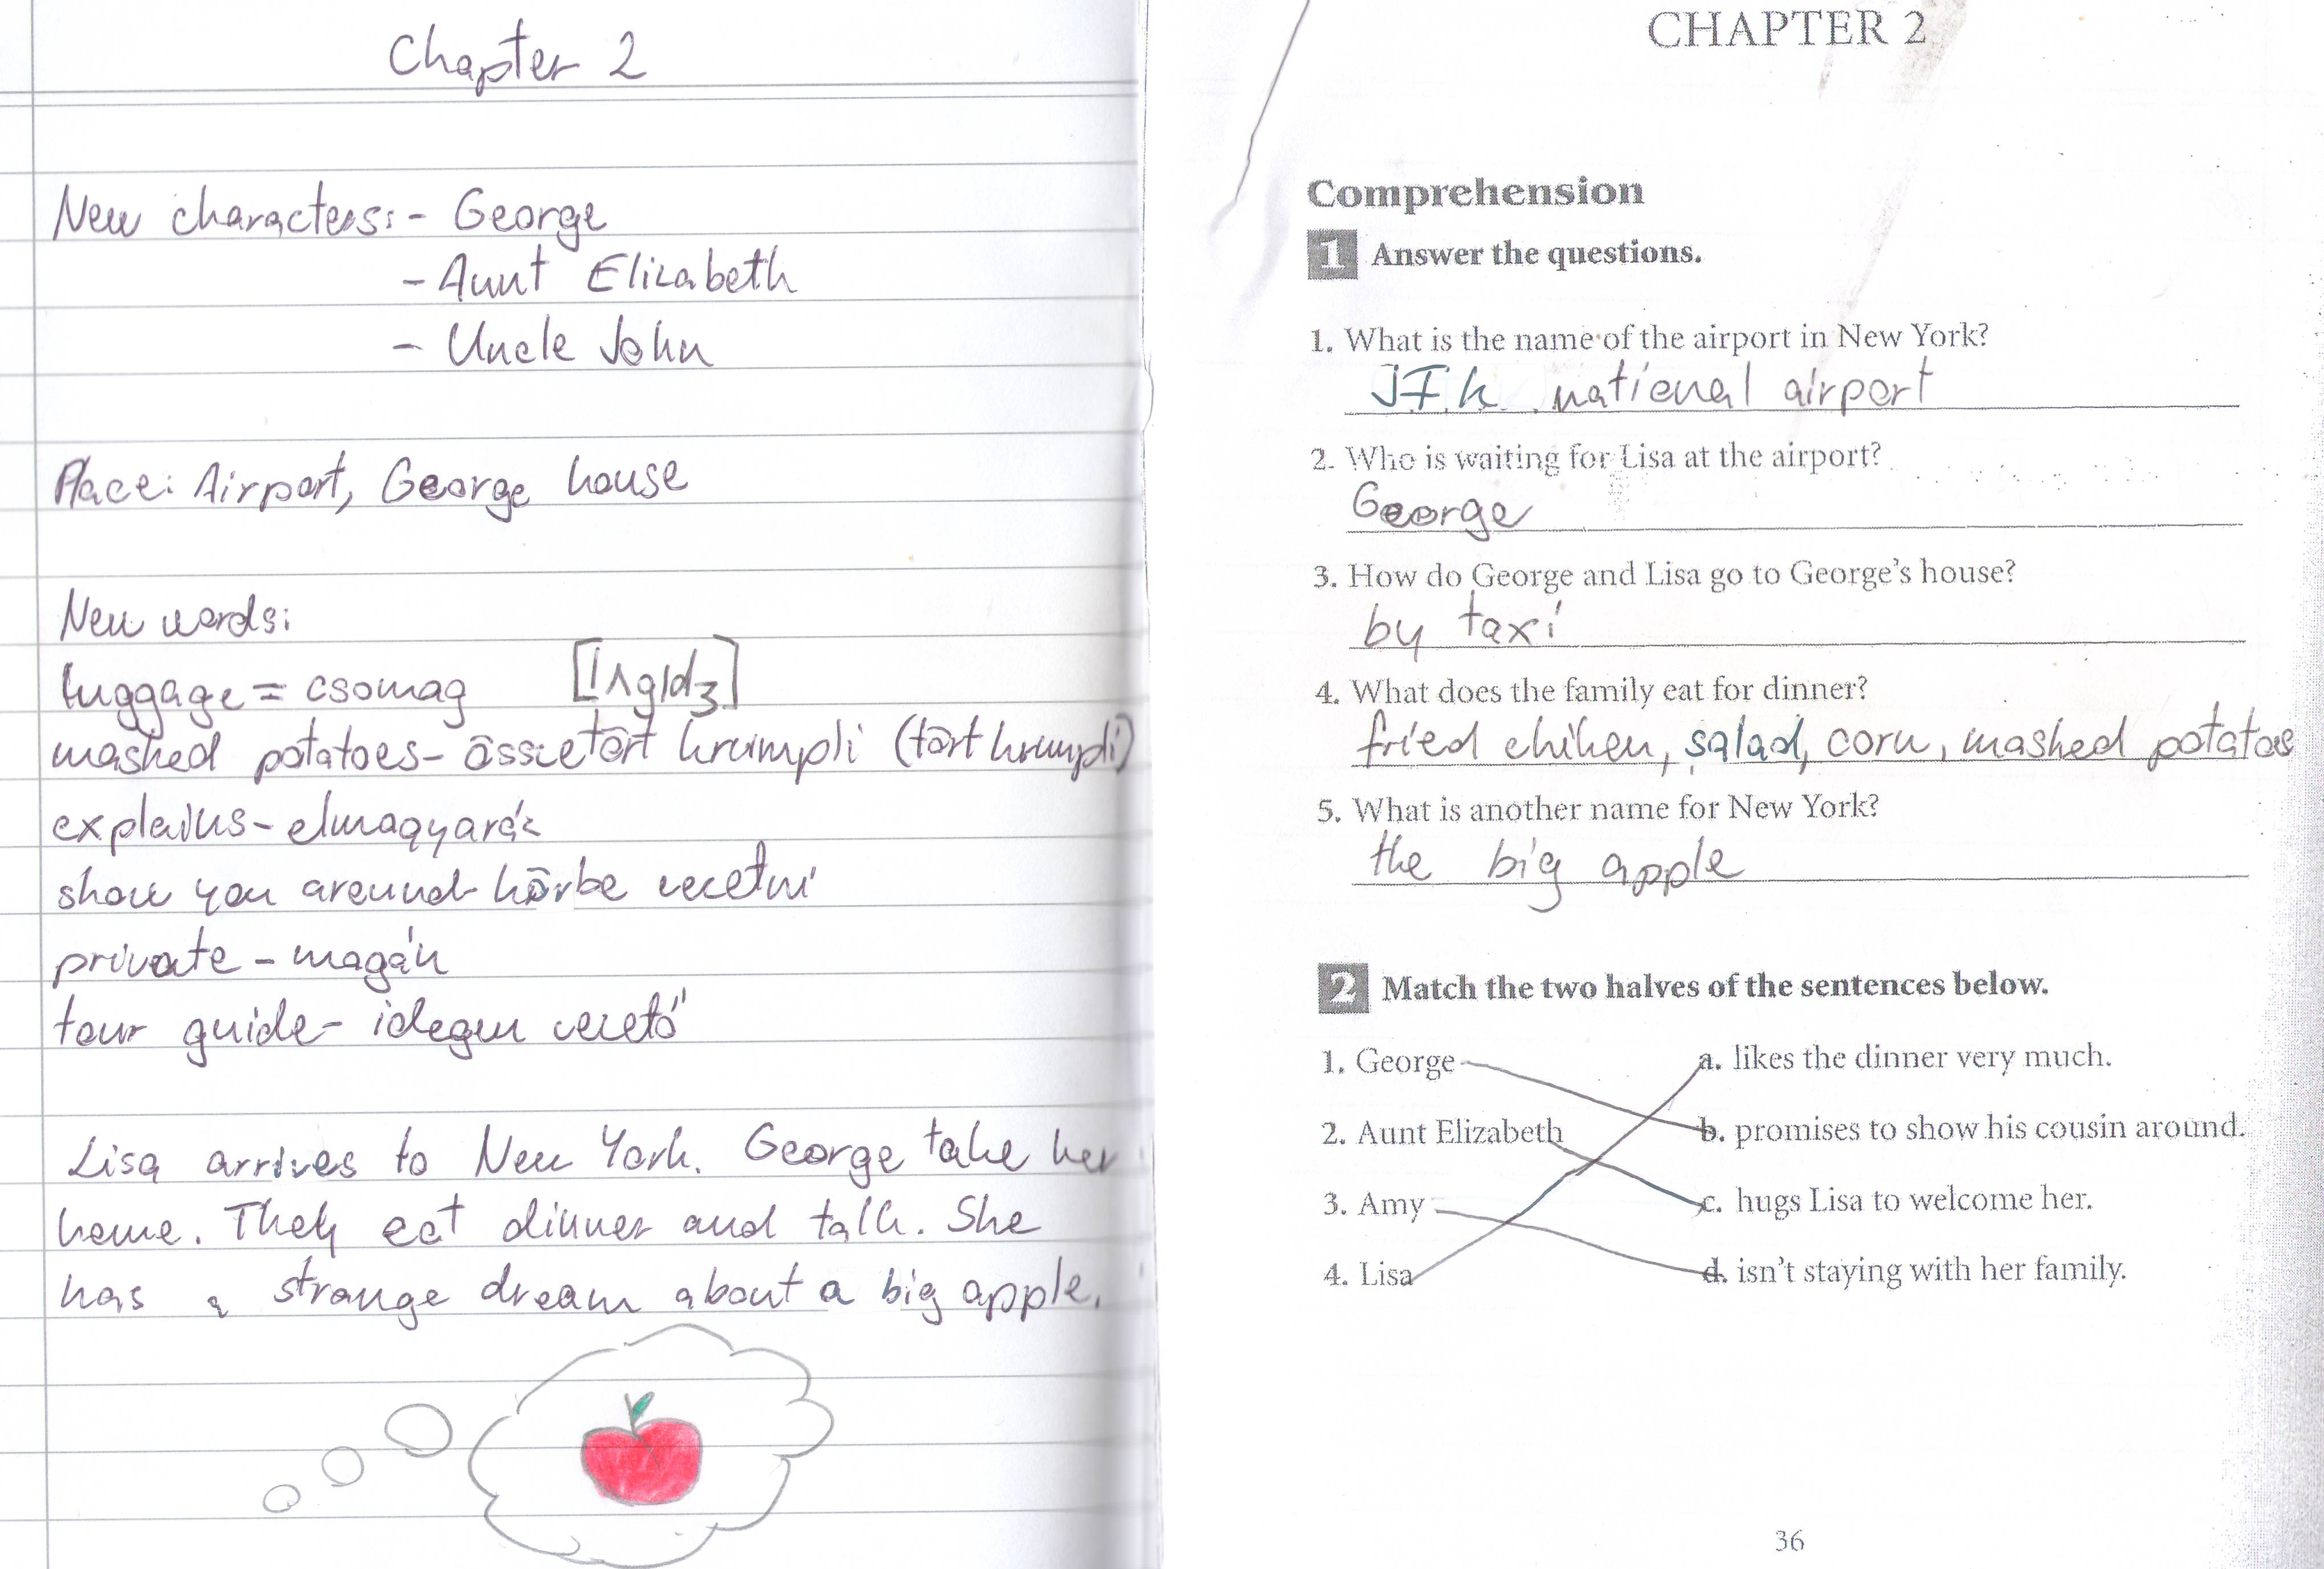 Chapter 2
New characters: - George
- Aunt Elizabeth
- Uncle John
Place: Airport, George house
New words:
luggage = csomag [lʌgɪdʒ]
mashed potatoes - összetört krumpli (tört krumpli)
explains - elmagyaráz
show you around - körbe vezetni
private - magán
tour guide - idegen vezető
Lisa arrives to New York. George take her
home. They eat dinner and talk. She
has a strange dream about a big apple.
CHAPTER 2
Comprehension
1 Answer the questions.
1. What is the name of the airport in New York?
J.F.k. national airport
2. Who is waiting for Lisa at the airport?
George
3. How do George and Lisa go to George's house?
by taxi
4. What does the family eat for dinner?
fried chiken, salad, corn, mashed potatoes
5. What is another name for New York?
the big apple
2 Match the two halves of the sentences below.
1. George a. likes the dinner very much.
2. Aunt Elizabeth b. promises to show his cousin around.
3. Amy c. hugs Lisa to welcome her.
4. Lisa d. isn't staying with her family.
36